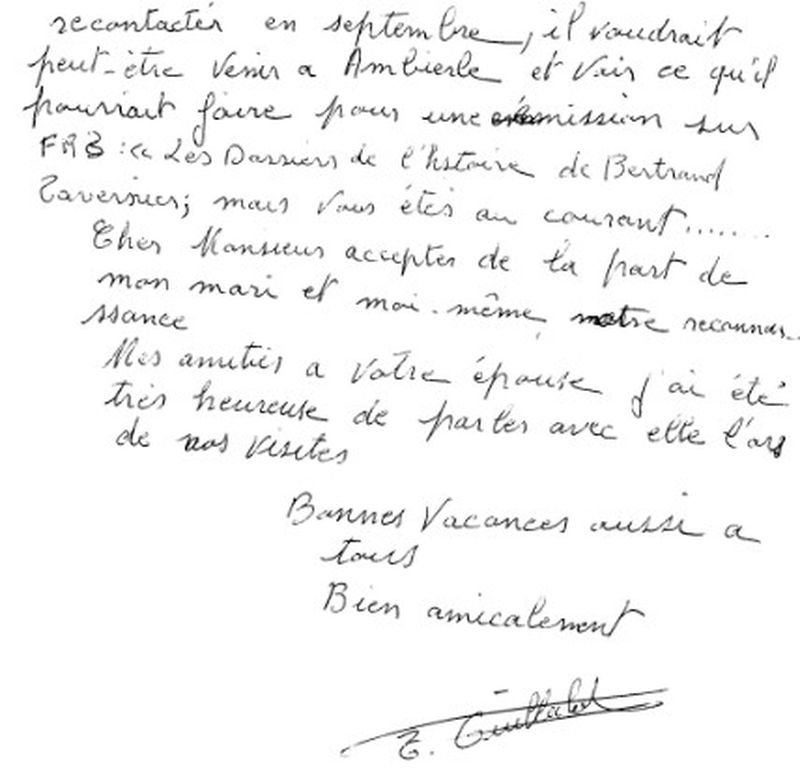 recontacter en septembre, il voudrait
peut-être venir a Ambierle et voir ce qu'il
pourrait faire pour une émission sur
FR3 : « Les Dossiers de l'histoire de Bertrand
Tavernier; mais vous étés au courant........
Cher Monsieur accepter de la part de
mon mari et moi-même notre reconnais-
ssance
Mes amitiés a votre épouse j'ai été
très heureuse de parler avec elle l'ors
de nos visites
Bonnes Vacances aussi a
tous
Bien amicalement